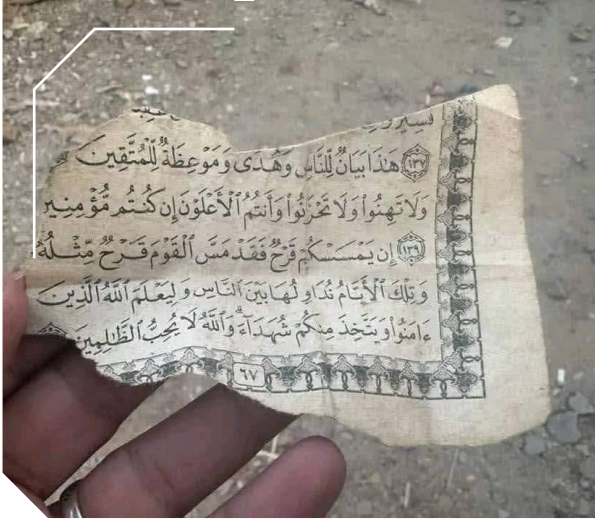 فَسِيرُوا۟
١٣٧ هَـٰذَا بَيَانٌ لِّلنَّاسِ وَهُدًى وَمَوْعِظَةٌ لِّلْمُتَّقِينَ
وَلَا تَهِنُوا۟ وَلَا تَحْزَنُوا۟ وَأَنتُمُ ٱلْأَعْلَوْنَ إِن كُنتُم مُّؤْمِنِينَ
١٣٩ إِن يَمْسَسْكُمْ قَرْحٌ فَقَدْ مَسَّ ٱلْقَوْمَ قَرْحٌ مِّثْلُهُۥ
وَتِلْكَ ٱلْأَيَّامُ نُدَاوِلُهَا بَيْنَ ٱلنَّاسِ وَلِيَعْلَمَ ٱللَّهُ ٱلَّذِينَ
ءَامَنُوا۟ وَيَتَّخِذَ مِنكُمْ شُهَدَآءَ ۗ وَٱللَّهُ لَا يُحِبُّ ٱلظَّـٰلِمِينَ
٦٧